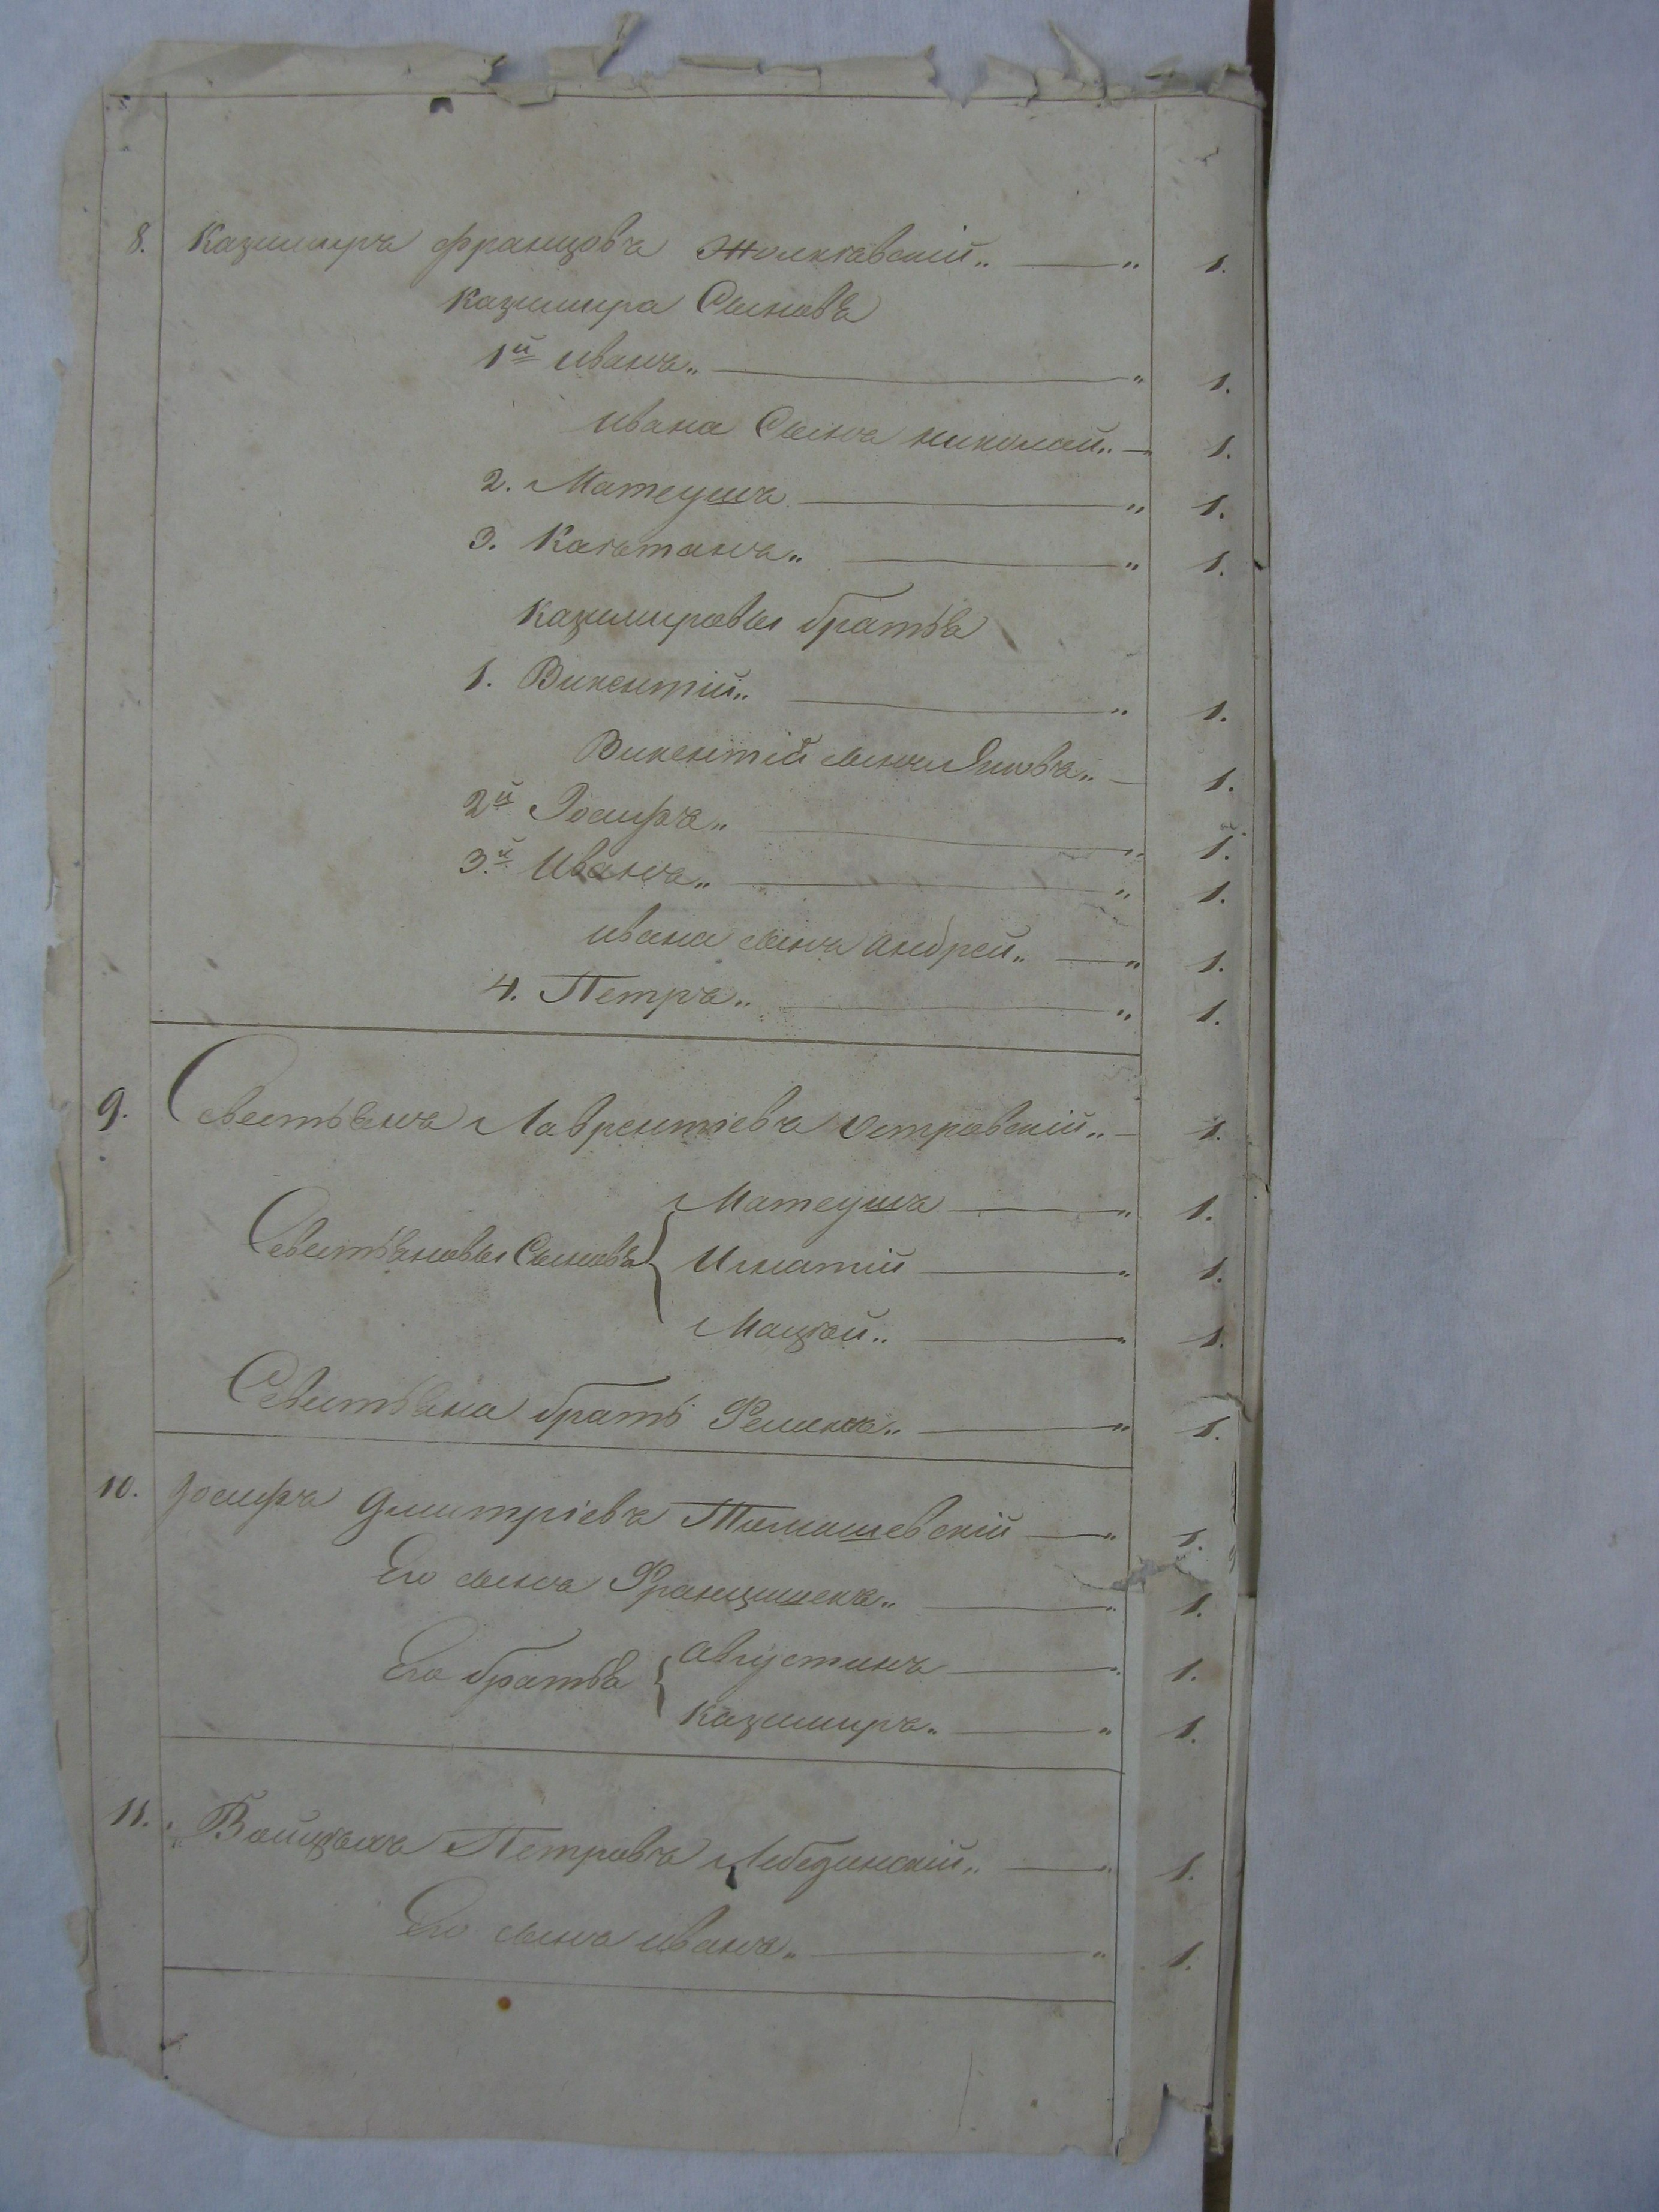 8. Казимиръ Францовъ Жолктавскій „ — „ 1.
Казимира Сыновья
1й Иванъ „ — „ 1.
Ивана Сынъ Николай „ — 1.
2. Матеушъ — „ 1.
3. Каэтанъ „ — „ 1.
Казимировы братья
1. Викентій „ — „ 1.
Викентій сынъ Яковъ „ — 1.
2й Іосифъ „ — „ 1.
3й Иванъ „ — „ 1.
Ивана сынъ Андрей „ — „ 1.
4. Петръ „ — „ 1.
9. Севестьянъ Лаврентіевъ Островскій „ — 1.
Матеушъ — „ 1.
Севестьяновы Сыновья { Игнатій — „ 1.
Мацей „ — „ 1.
Севестьяна братъ „ — „ 1.
10. Іосифъ Дмитріевъ Томашевскій — „ 1.
Его сынъ Францишекъ „ — „ 1.
Его братья { Августинъ — „ 1.
Казимиръ „ — „ 1.
11. Войцѣхъ Петровъ Лебединскій „ — „ 1.
Его сынъ Иванъ „ — „ 1.